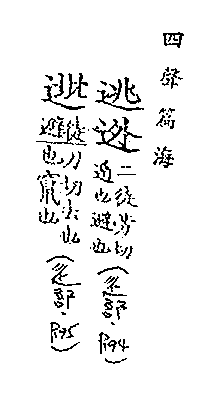 四聲篇海
逃迯
二徒劳切
也避也
(辵部·P.94)
徒刀切去也
避也竄也
(辵部·P.95)